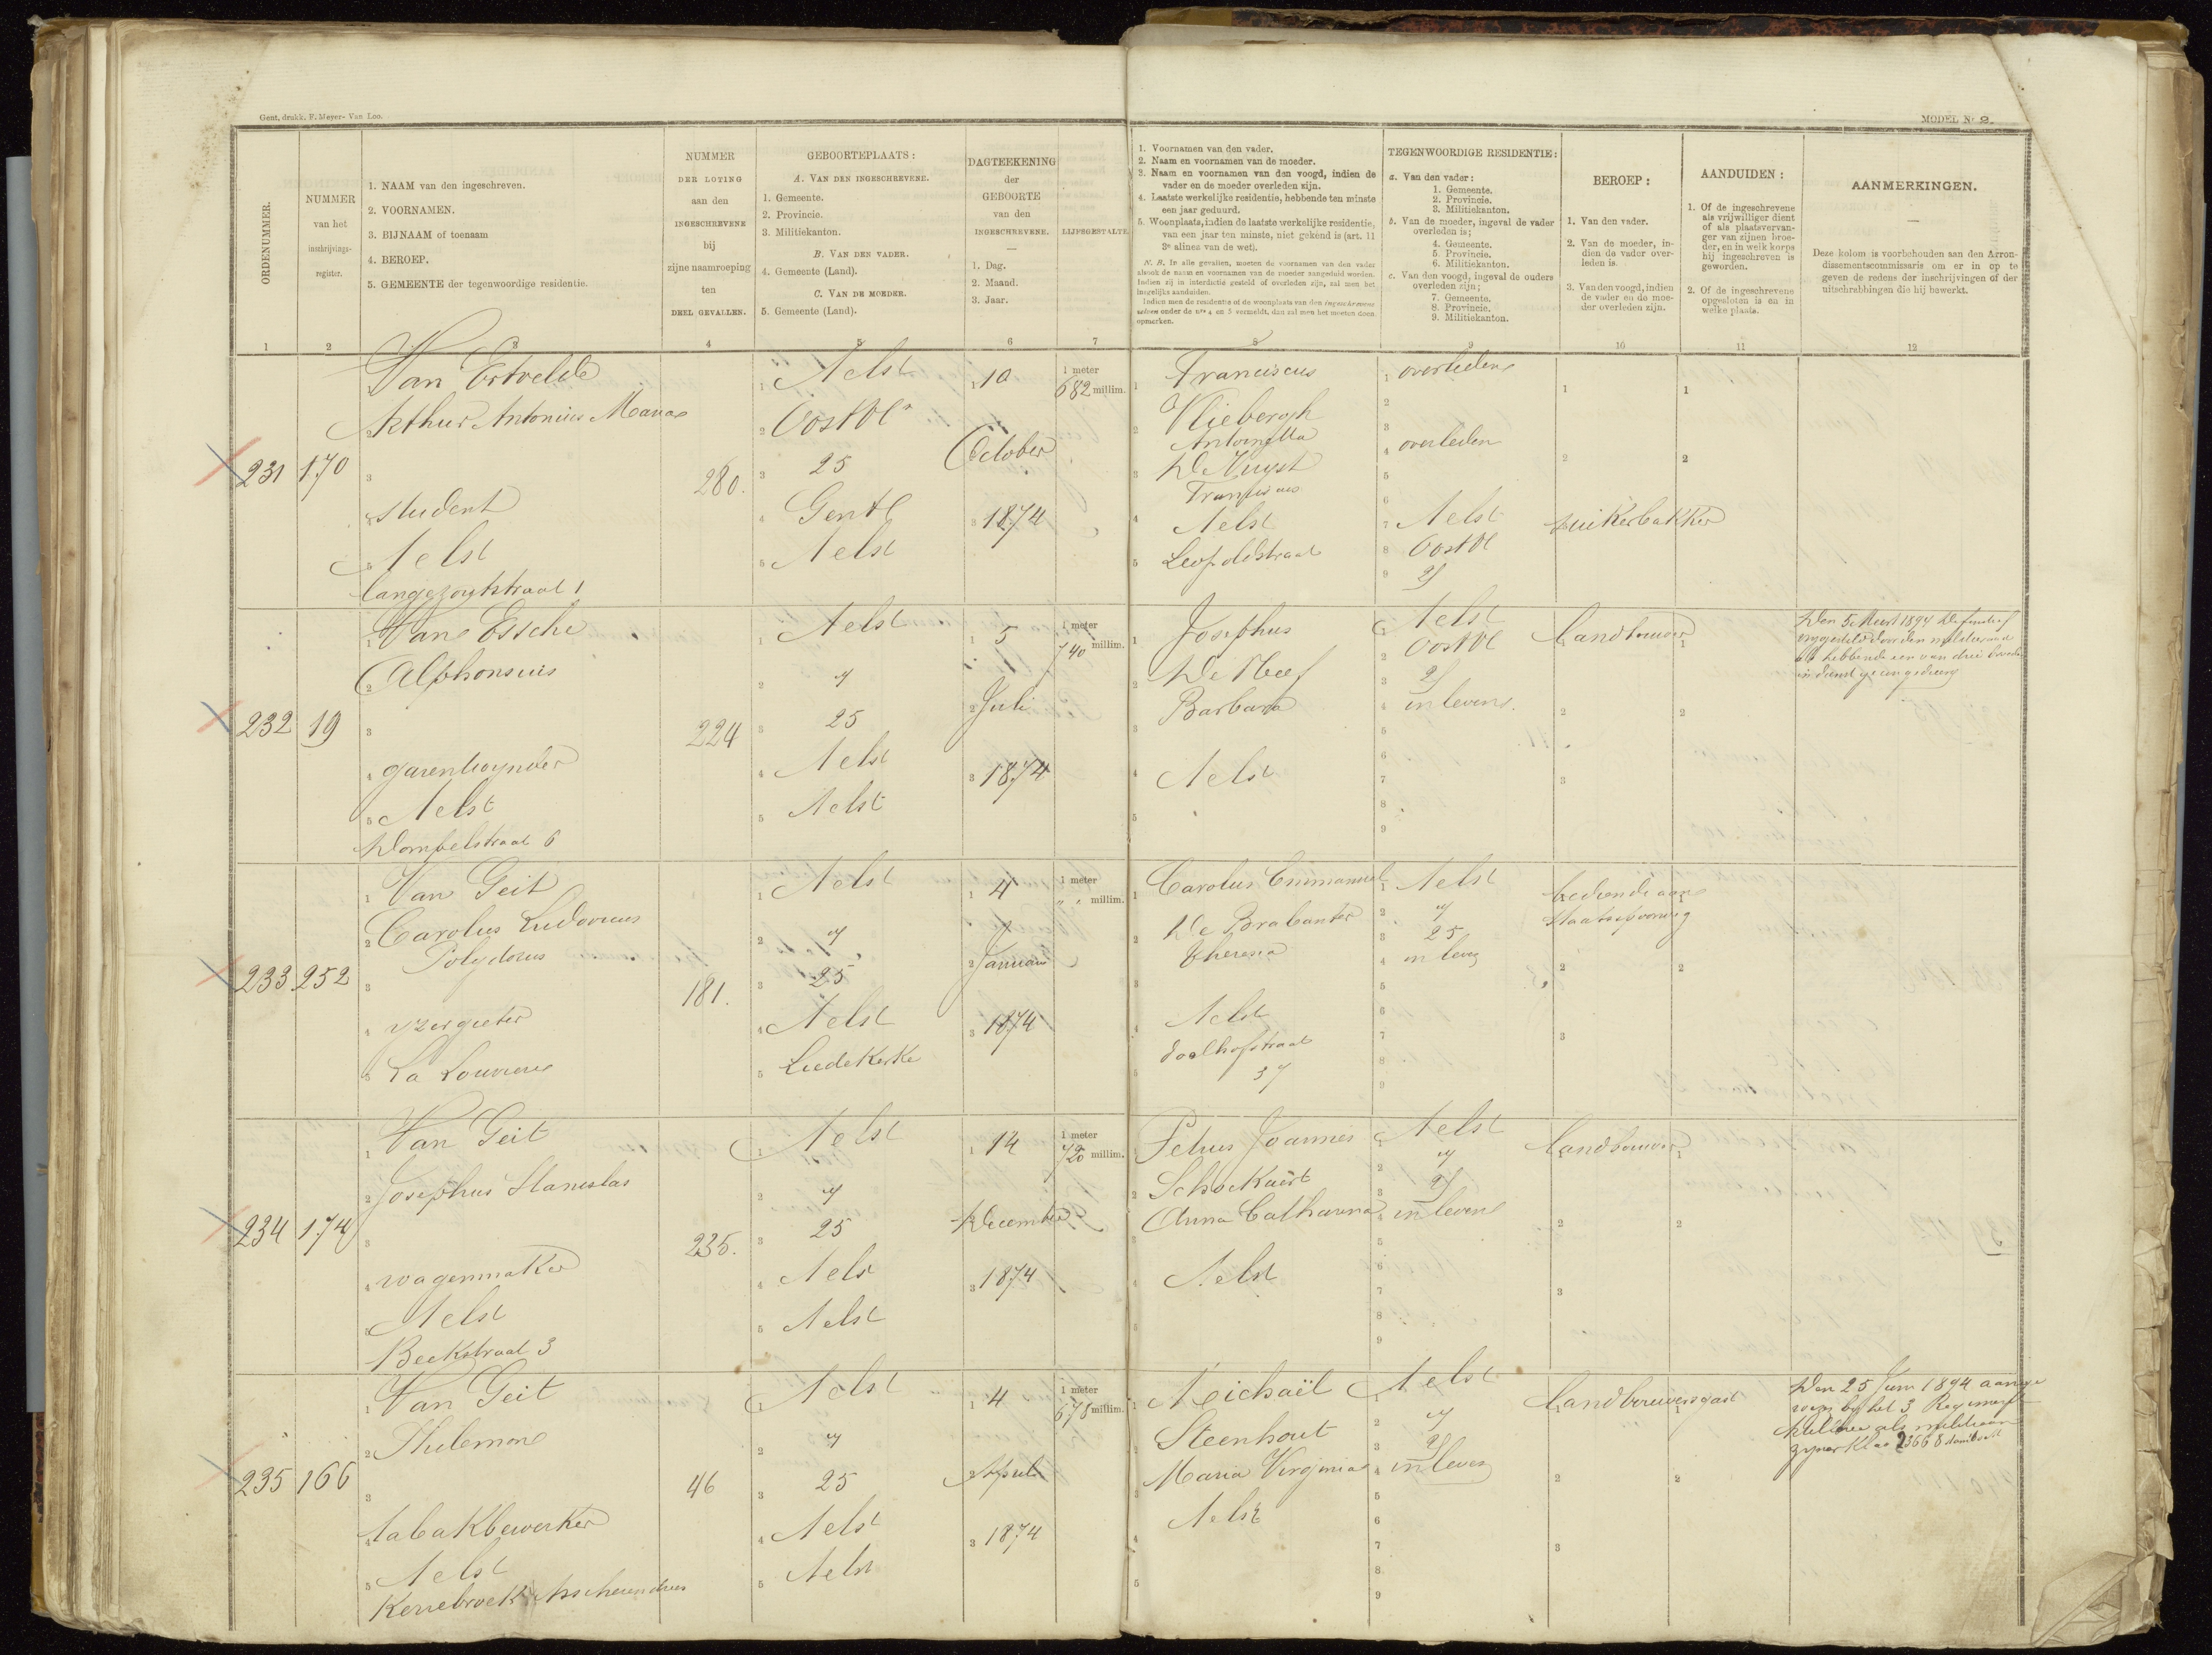 Gent, drukk. F. Meyer-Van Loo.
MODEL Nr 2.
ORDENUMMER.
NUMMER
van het
inschrijvings-
register.
1. NAAM van den ingeschreven.
2. VOORNAMEN.
3. BIJNAAM of toenaam
4. BEROEP.
5. GEMEENTE der tegenwoordige residentie.
NUMMER
DER LOTING
aan den
INGESCHREVENE
bij
zijne naamroeping
ten
DEEL GEVALLEN.
GEBOORTEPLAATS :
A. VAN DEN INGESCHREVENE.
1. Gemeente.
2. Provincie.
3. Militiekanton.
B. VAN DEN VADER.
4. Gemeente (Land).
C. VAN DE MOEDER.
5. Gemeente (Land).
DAGTEEKENING
der
GEBOORTE
van den
INGESCHREVENE.
1. Dag.
2. Maand.
3. Jaar.
LIJFSGESTALTE
1. Voornamen van den vader.
2. Naam en voornamen van de moeder.
3. Naam en voornamen van den voogd, indien de
vader en de moeder overleden zijn.
4. Laatste werkelijke residentie, hebbende ten minste
een jaar geduurd.
5. Woonplaats, indien de laatste werkelijke residentie,
van een jaar ten minste, niet gekend is (art. 11
3e alinea van de wet).
N. B. In alle gevallen, moeten de voornamen van den vader
alsook de naam en voornamen van de moeder aangeduid worden.
Indien zij in interdictie gesteld of overleden zijn, zal men het
insgelijks aanduiden.
Indien men de residentie of de woonplaats van den ingeschrevene
zelven onder de nrs 4 en 5 vermeldt, dan zal men het moeten doen
opmerken.
TEGENWOORDIGE RESIDENTIE :
a. Van den vader :
1. Gemeente.
2. Provincie.
3. Militiekanton.
b. Van de moeder, ingeval de vader
overleden is ;
4. Gemeente.
5. Provincie.
6. Militiekanton.
c. Van den voogd, ingeval de ouders
overleden zijn ;
7. Gemeente.
8. Provincie.
9. Militiekanton.
BEROEP :
1. Van den vader.
2. Van de moeder, in-
dien de vader over-
leden is.
3. Van den voogd, indien
de vader en de moe-
der overleden zijn.
AANDUIDEN :
1. Of de ingeschrevene
als vrijwilliger dient
of als plaatsvervan-
ger van zijnen broe-
der, en in welk korps
hij ingeschreven is
geworden.
2. Of de ingeschrevene
opgesloten is en in
welke plaats.
AANMERKINGEN.
Deze kolom is voorbehouden aan den Arron-
dissementscommissaris om er in op te
geven de redens der inschrijvingen of der
uitschrabbingen die hij bewerkt.
1 2 3 4 5 6 7 8 9 10 11 12
231 170
Van Ertvelde
Arthur Antonius Maria
student
Aelst
Langezoutstraat 1
280.
Aelst
Oostvl
25
Gent
Aelst
10
October
1874
1 meter
682 millim.
Franciscus
Vliebergh
Antoinetta
De Nuyst
Aelst
Leopoldstraat
overleden
overleden
Aelst
Oostvl
25
suikerbakker
232 19
Van Essche
Alphonsus
garentwynder
Aelst
Dompelstraat 6
224
Aelst
"
25
Aelst
Aelst
5
Juli
1874
1 meter
740 millim.
Josephus
De Neef
Barbara
Aelst
Aelst
Oostvl
25
in leven
landbouwer
Den 5 Meert 1894 definitief
als hebbende een van drie broeders
233 252
Van Geit
Carolus Ludovicus
Polydorus
yzergieter
La Louviere
181.
Aelst
"
25
Aelst
Liedekerke
4
Januari
1874
1 meter
" " millim.
Carolus Emmanuel
De Brabanter
Theresia
Aelst
doolhofstraat
37
Aelst
"
25
in leven
bediende aan
Staatspoorweg
234 174
Van Geit
Josephus Stanislas
wagenmaker
Aelst
Beekstraat 3
235.
Aelst
"
25
Aelst
Aelst
14
December
1874
1 meter
720 millim.
Petrus Joannes
Schockaert
Anna Catharina
Aelst
Aelst
"
25
in leven
landbouwer
235 166
Van Geit
Philemon
tabakbewerker
Aelst
Kerrebroek Asscherendries
46
Aelst
"
25
Aelst
Aelst
4
April
1874
1 meter
678 millim.
Michaël
Steenhout
Maria Virginia
Aelst
Aelst
"
25
in leven
landbouwersgast
Den 25 Juni 1894 aange
by het 3 Regiment
als militiaan
zyner klas 23668